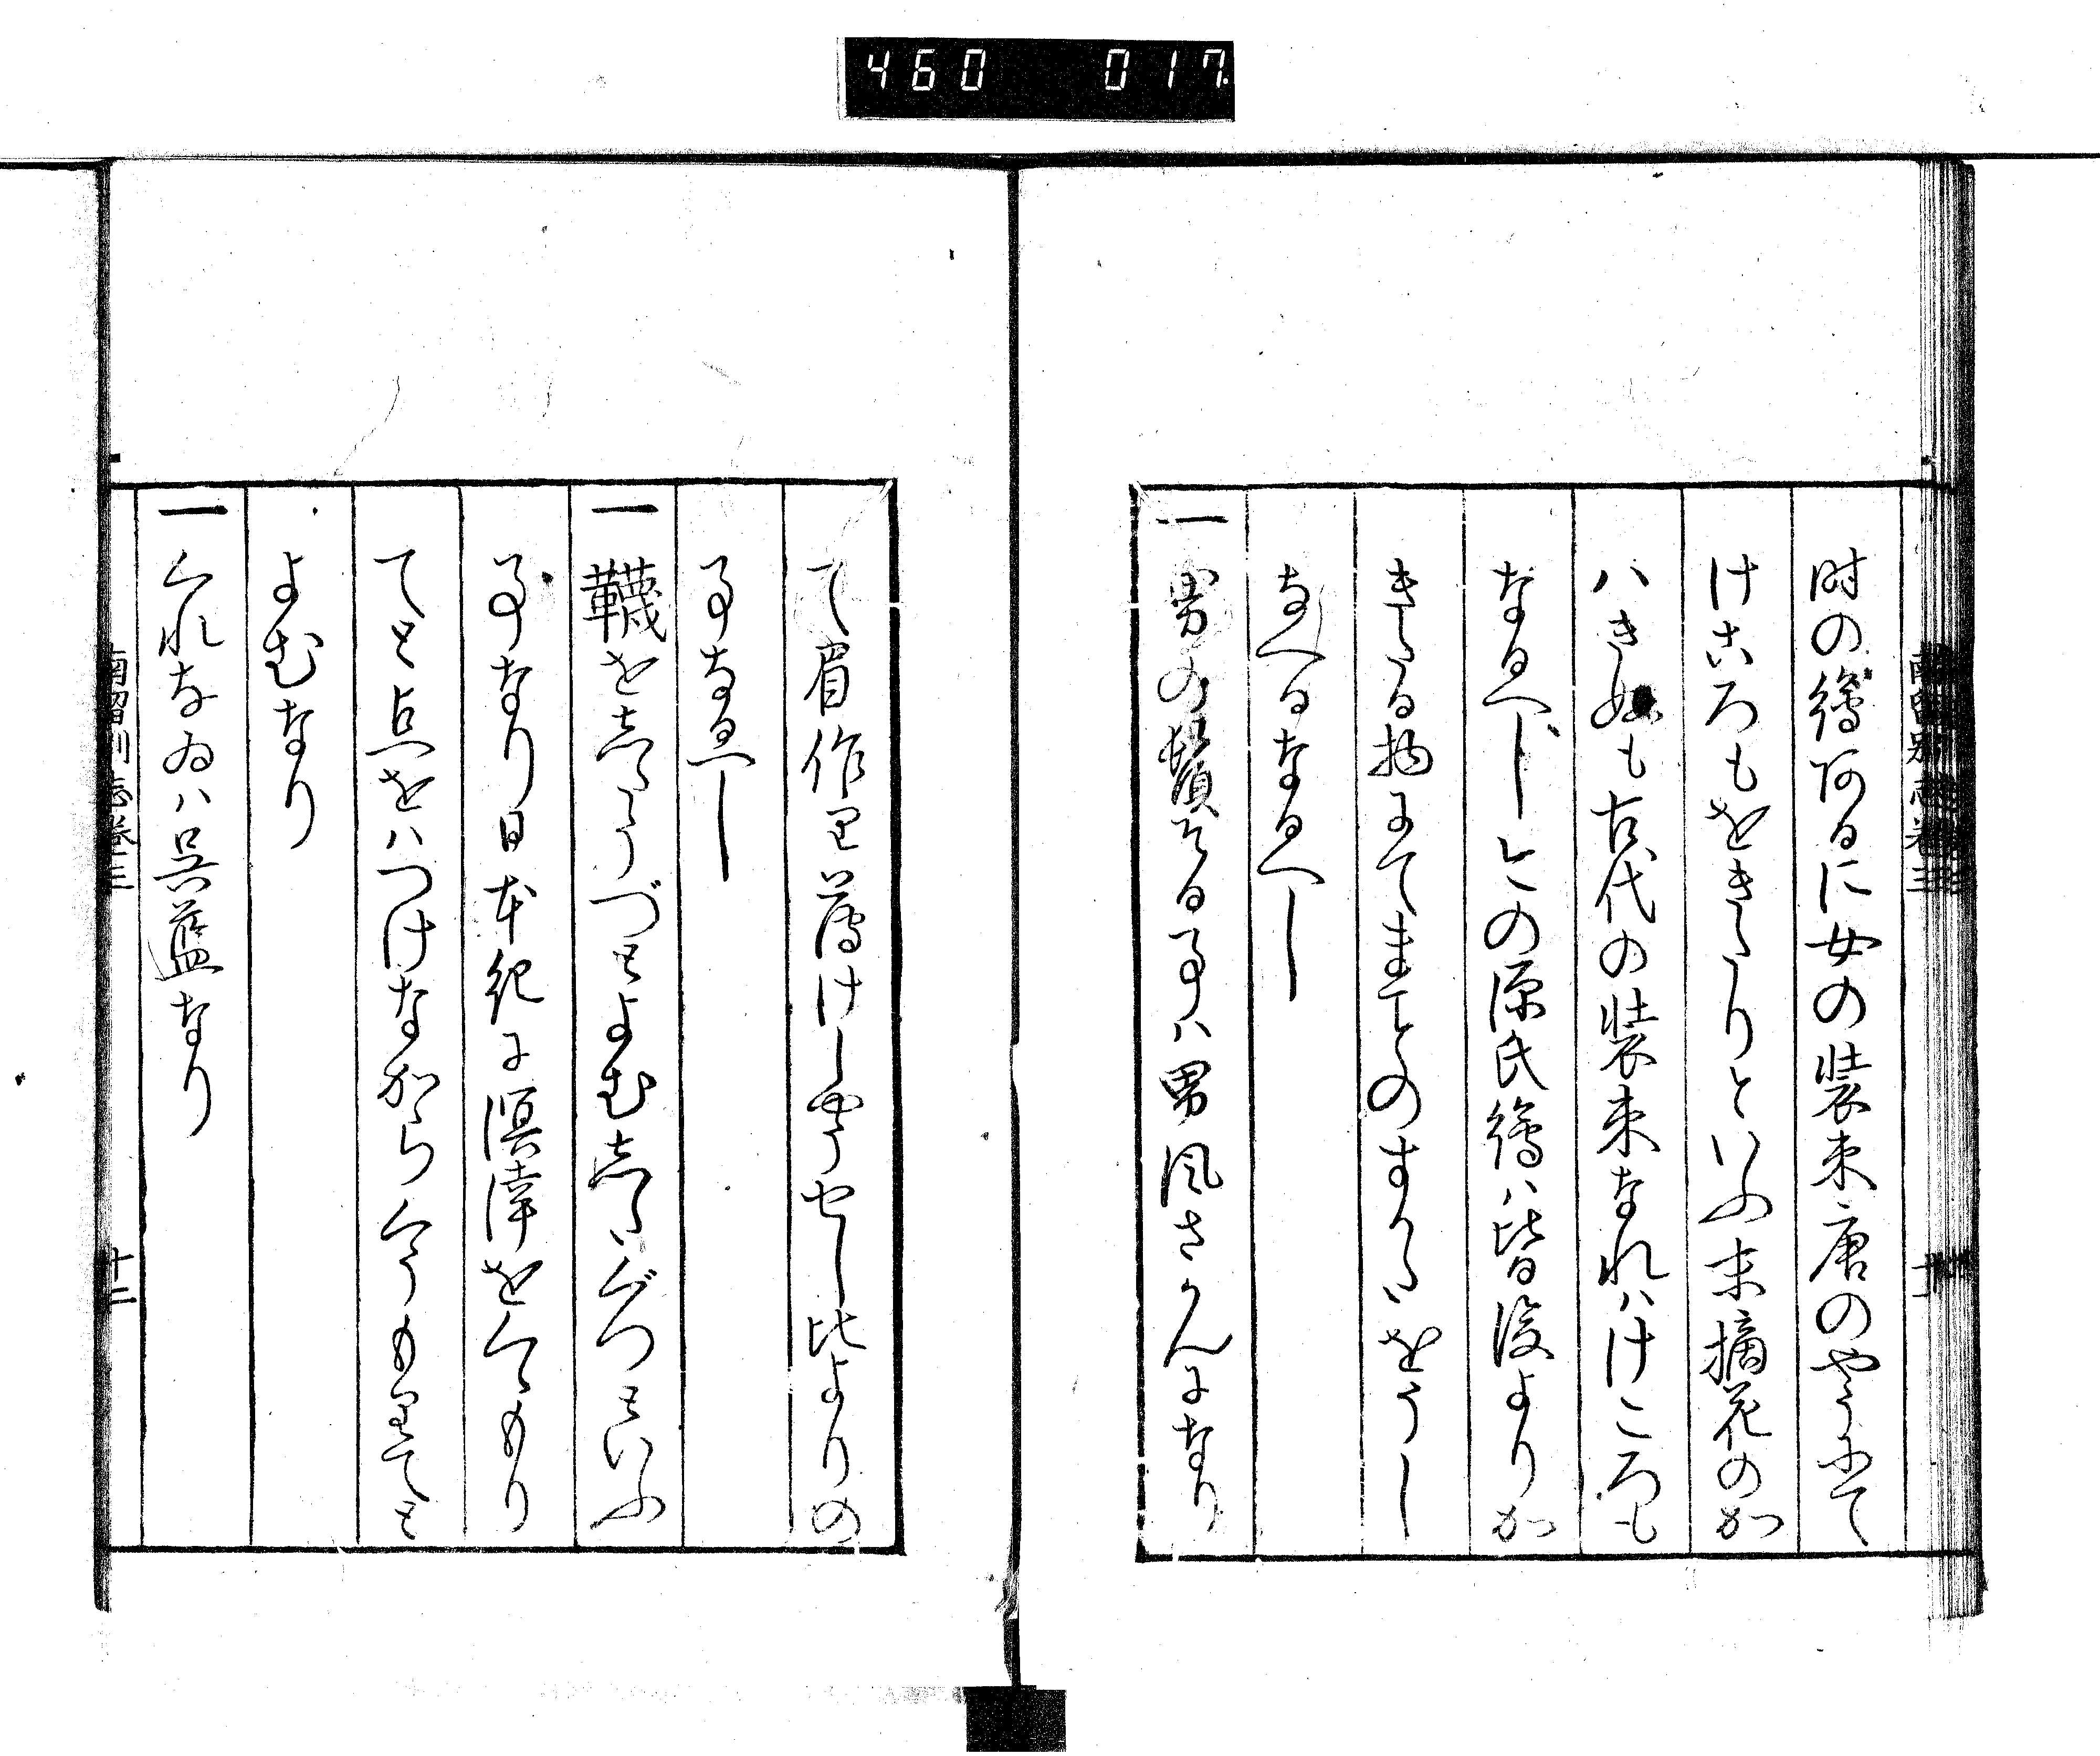 460 017
時の繪阿るに女の装束唐のやうにて
けころもをきたりといふ末摘花のか
ハきぬも古代の装束なれハけころも
なるへし今の源氏繪ハ皆後よりか
きたる物にてまことのすかたをうし
なへるなるへし
一 男の鬚そる事ハ男風さかんになり
て眉作り薄けしやうせし比よりの
事なるへし
一 韈をしたうづとよむしたぐつといふ
事なり日本紀に溟涬をくゝもり
てと点をハつけなからくうもりてと
よむなり
一 くれなゐハ呉藍なり
南留別志卷三 十二